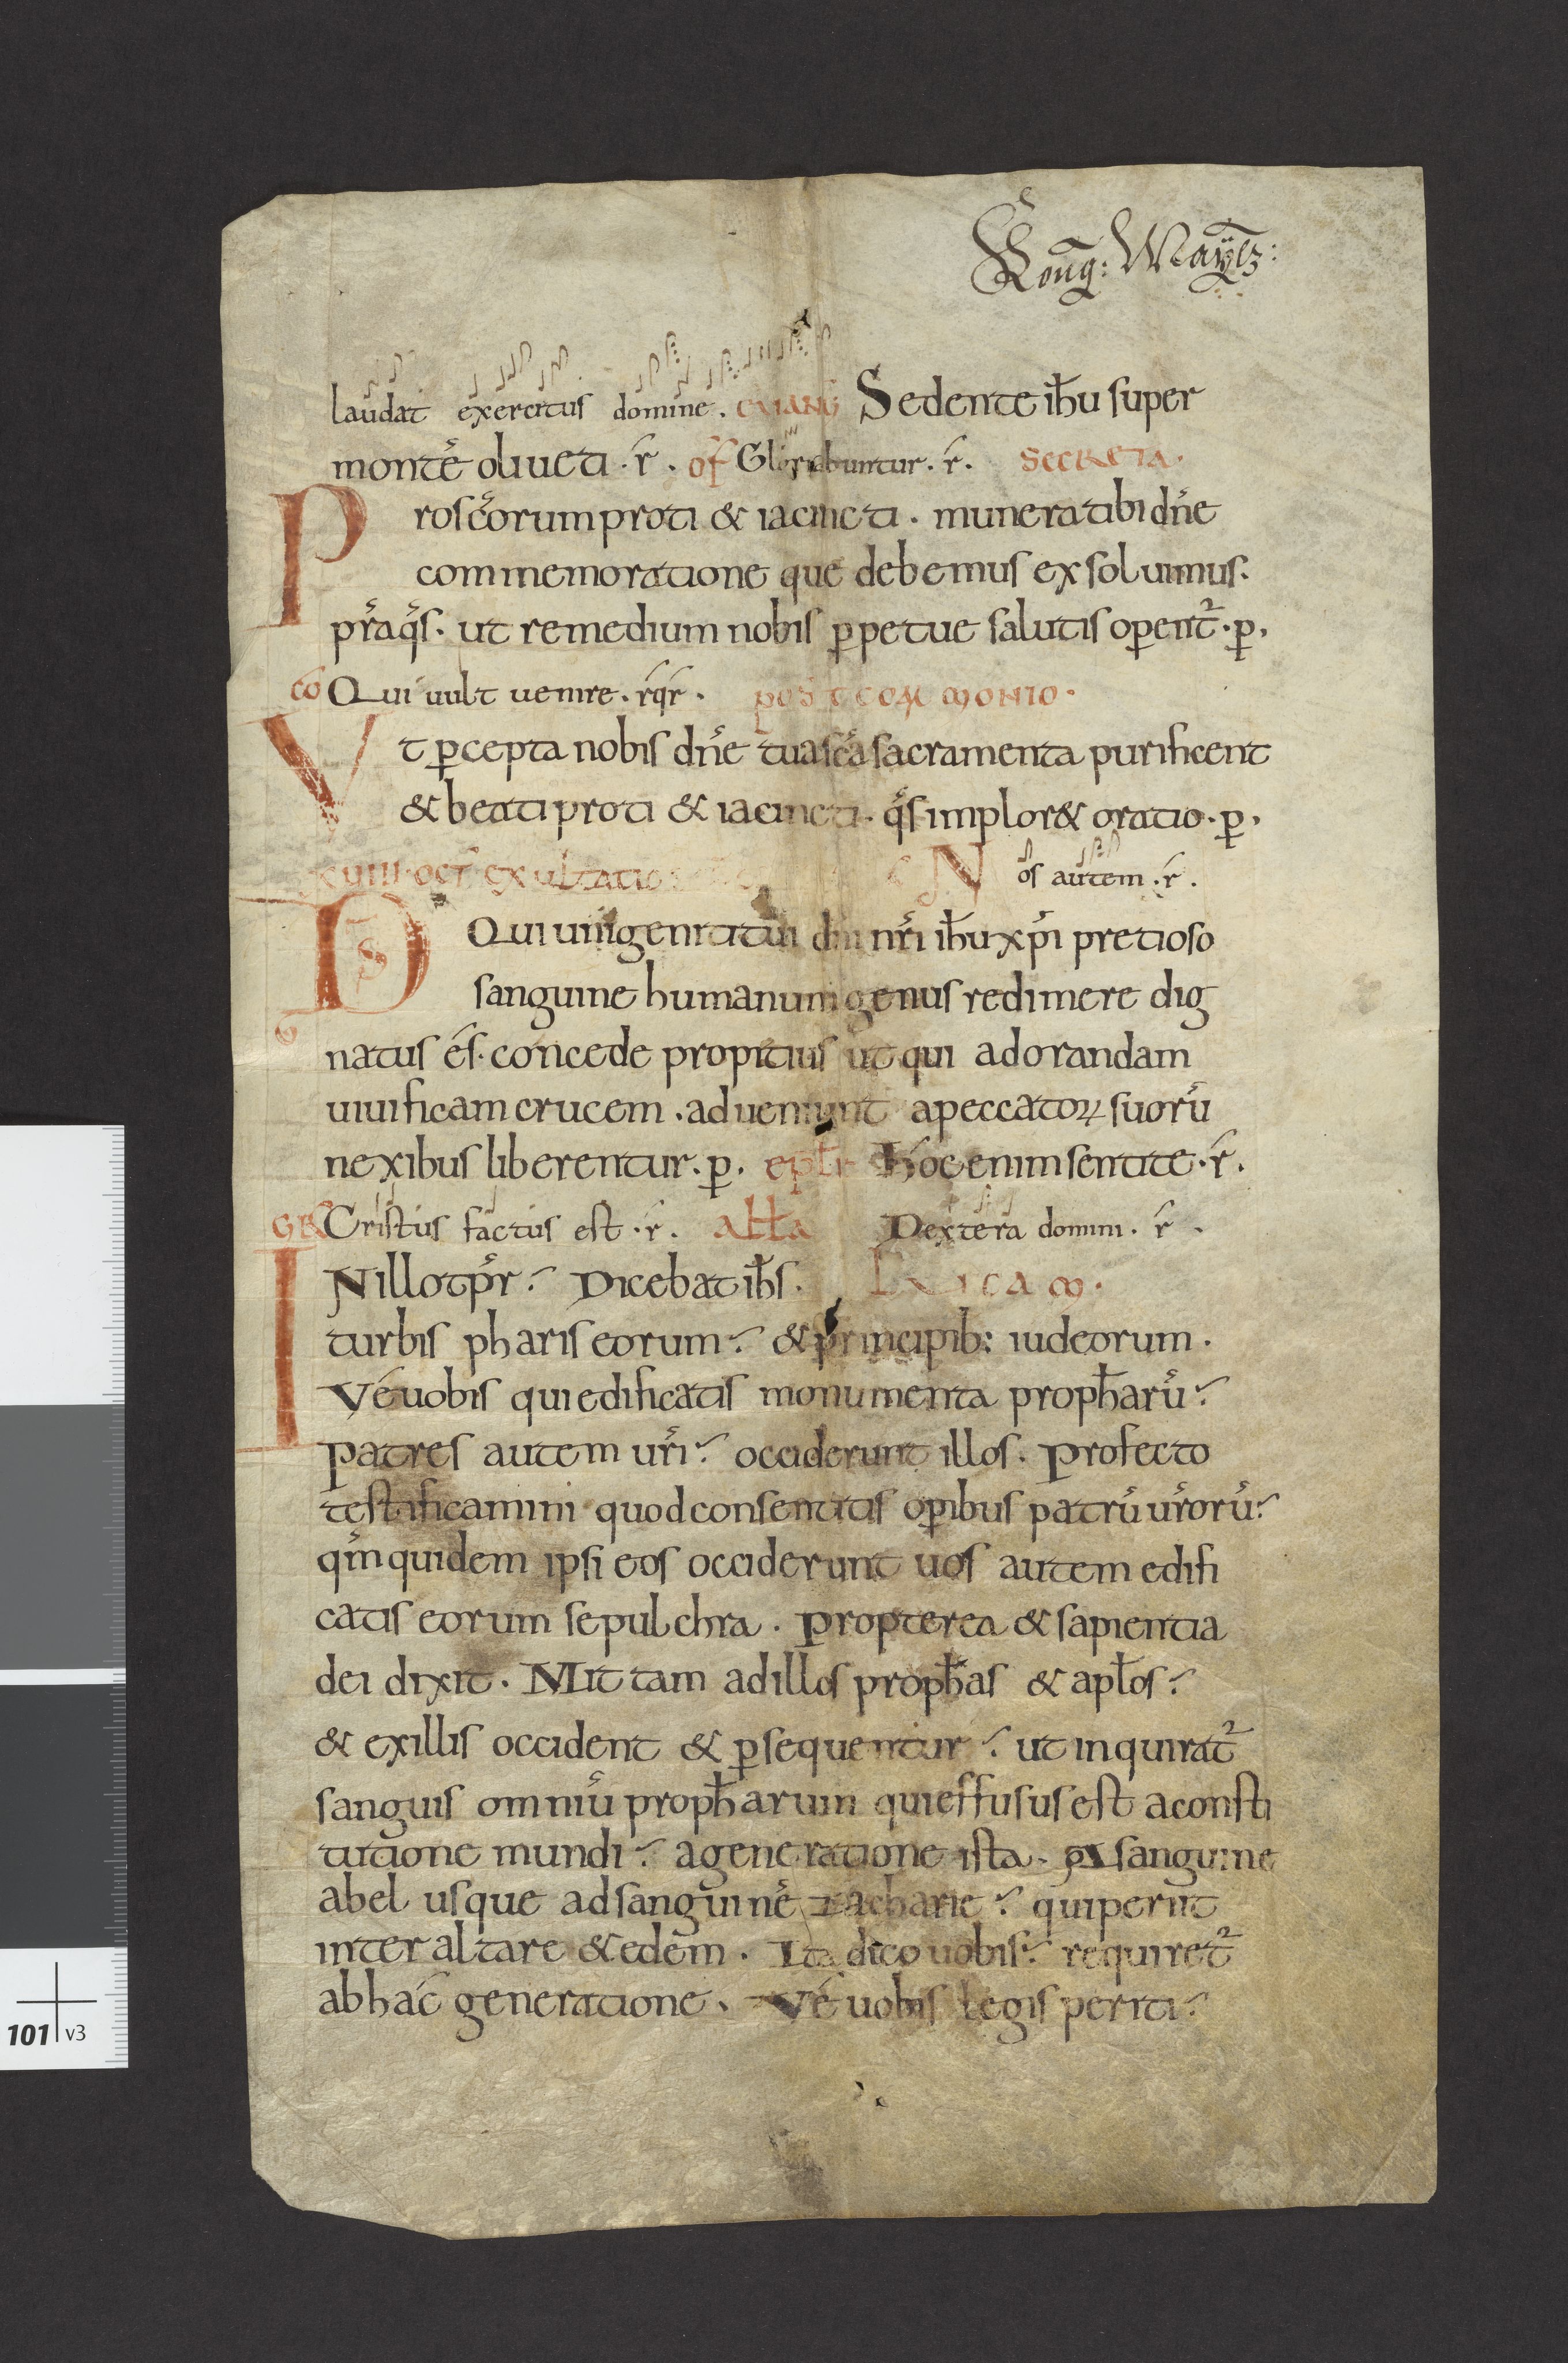 Kong: Maÿtz:
laudat exercitus domine. euang Sedente ihu super
monte oliueti. r. of Gloriabuntur. r. secreta.
Pro scorum proti & iacincti. munera tibi dne
commemoratione que debemus exsoluimus.
pra qs. ut remedium nobis ppetue salutis opent. p.
co Qui uult uenire. rqr. postcommonio.
Vt pcepta nobis dne tua sca sacramenta purificent
& beati proti & iacincti. qs implor& oratio. p.
xuiii. oct exultatio Nos autem. r.
Ds Qui unigeniti tui dni nri ihu xpi pretioso
sanguine humanum genus redimere dig
natus es. concede propitius ut qui adorandam
uiuificam crucem. adueniunt a peccatoꝝ suoru
nexibus liberentur. p. eptr Hoc enim sentite. r.
GR Cristus factus est. r. alla Dextera domini. r.
IN illo tpr. Dicebat ihs. lucam.
turbis phariseorum. & principib: iudeorum.
Ve uobis qui edificatis monumenta propharu.
patres autem uri. occiderunt illos. Profecto
testificamini quod consentitis opibus patru uroru.
qm quidem ipsi eos occiderunt uos autem edifi
catis eorum sepulchra. Propterea & sapientia
dei dixit. Mittam ad illos prophas & aplos.
& ex illis occident & psequentur. ut inquirat
sanguis omniu propharum qui effusus est a consti
tutione mundi. a generatione ista. A sanguine
abel usque ad sanguine zacharie. qui periit
inter altare & edem. Ita dico uobis. requiret
ab hac generatione. Ve uobis legis periti.